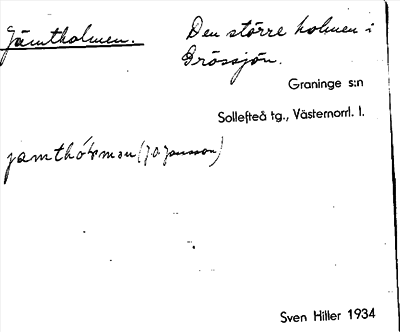 Jämtholmen.
Den större holmen i
Grössjön.
Graninge s:n
Sollefteå tg., Västernorrl. l.
jamthólman (J. O. Jonsson)
Sven Hiller 1934